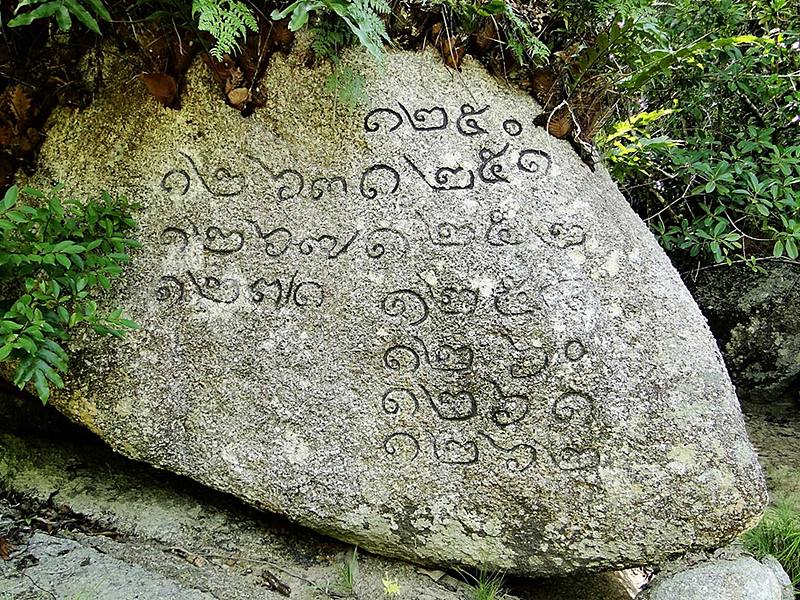 ๑๒๕๐
๑๒๖๓ ๑๒๕๑
๑๒๖๗ ๑๒๕๒
๑๒๗๑
๑๒๖๐
๑๒๖๑
๑๒๖๒